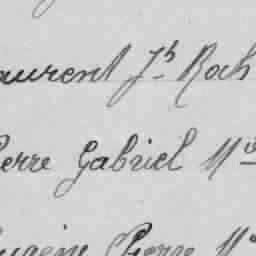 aurent Jh Roch
ierre Gabriel M
ugène Pierre M